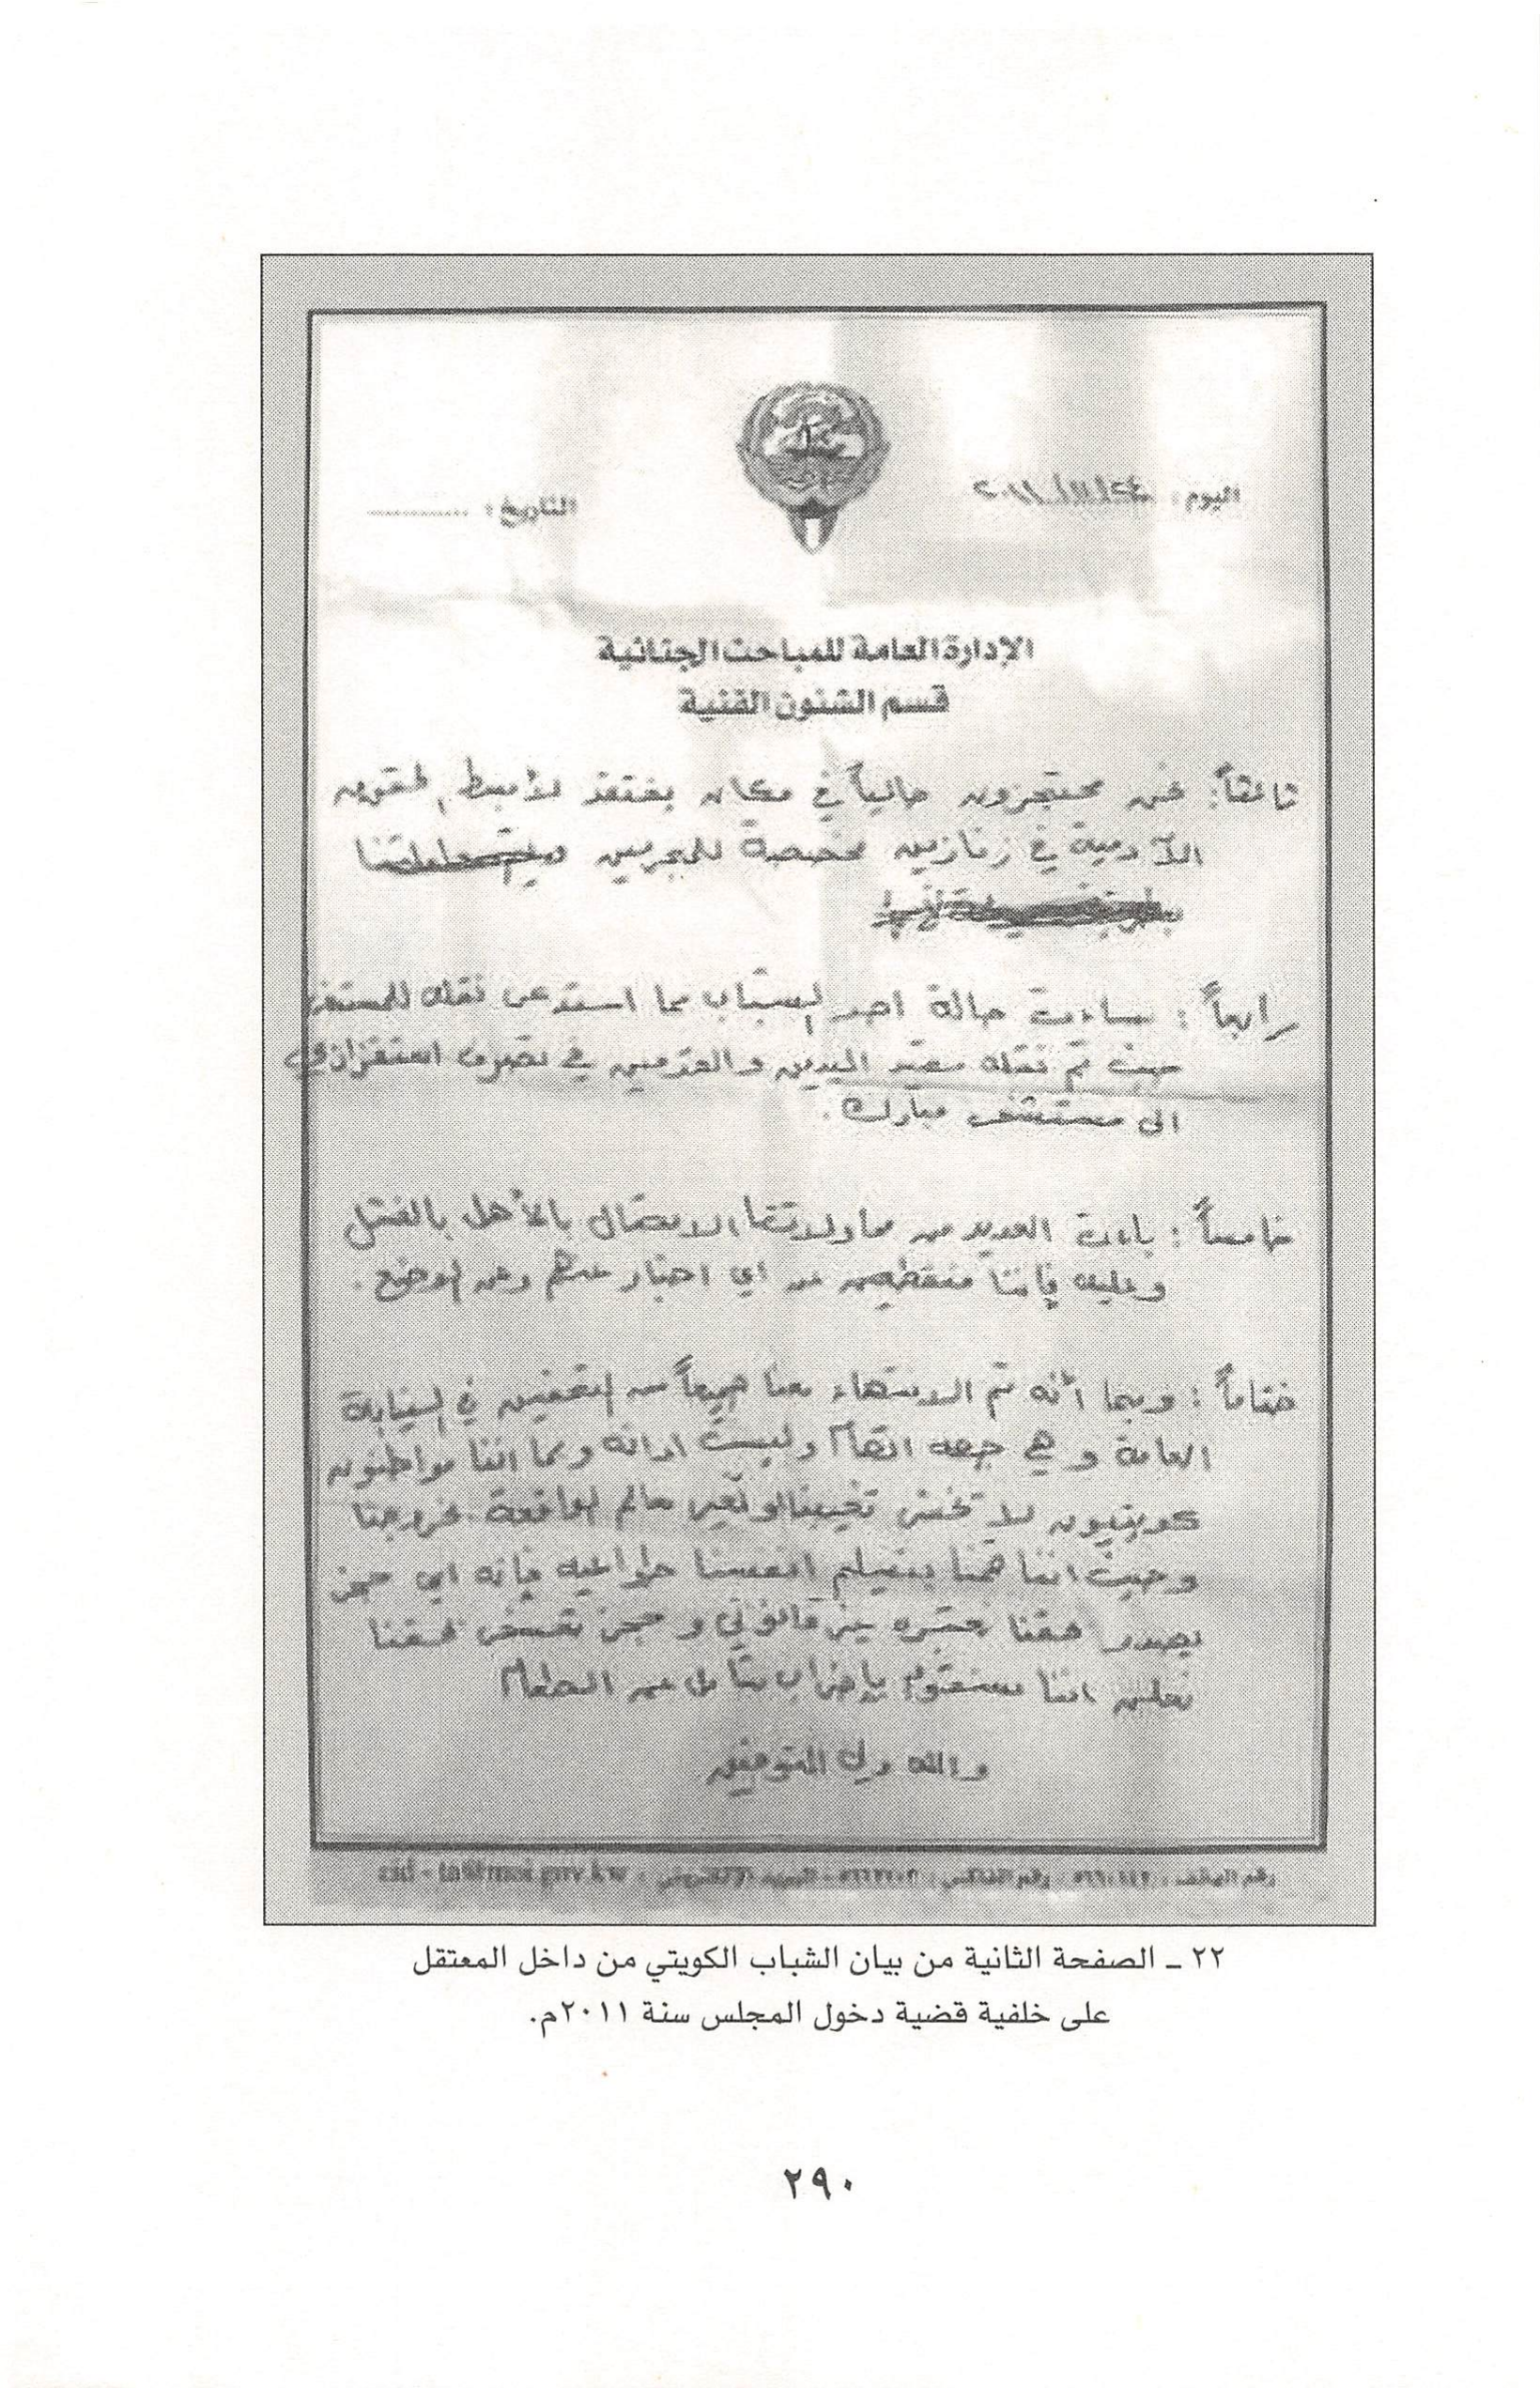 اليوم: ٢٠١١/١١/٢٤
التاريخ: ............
الإدارة العامة للمباحث الجنائية
قسم الشئون الفنية
ثالثاً: نحن محتجزون حالياً في مكان يفتقد لأبسط الحقوق
الآدمية في زنازين مخصصة للمجرمين
رابعاً: ساءت حالة احد الشباب مما استدعى نقله للمستشفى
حيث تم نقله مقيد اليدين والقدمين في تصرف استفزازي
الى مستشفى مبارك.
خامساً: باءت العديد من محاولاتنا الاتصال بالأهل بالفشل
وعليه فإننا منقطعين عن اي اخبار عنهم وعن الوضع.
ختاماً: وبما أنه تم الانتهاء معنا جميعاً من التحقيق في النيابة
العامة وهي جهه اتهام وليست ادانه وبما اننا مواطنون
كويتيون لا تخشى تغيبنا او تغير معالم الواقعة بخروجنا
وحيث اننا قمنا بتسليم انفسنا طواعيه فإنه اي حجز
يصدر بحقنا نعتبره غير قانوني و حجز تعسفي بحقنا
نعلن اننا سنقوم بإضراب شامل عن الطعام
والله ولي التوفيق
رقم الهاتف: رقم الفاكس: البريد الالكتروني:
٢٢ ـ الصفحة الثانية من بيان الشباب الكويتي من داخل المعتقل
على خلفية قضية دخول المجلس سنة ٢٠١١م.
٢٩٠